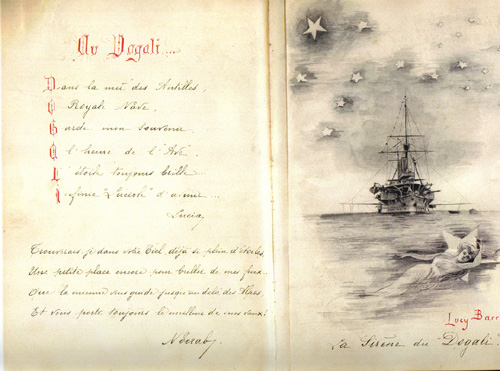 Au Dogali...
Dans la mer des Antilles,
O Royale Nave.
Garde mon souvenir
A l'heure de l'Ave.
L'étoile toujours brille
Infinie "Luciole" d'avenir...
Lucia
Trouverais-je dans votre Ciel déjà si plein d'étoiles,
Une petite place encore pour briller de mes feux
Que la mienne vous guide jusqu'au delà des
Et vous porte toujours le meilleur de mes vœux!
Lucy Barr
La Sirène du "Dogali"